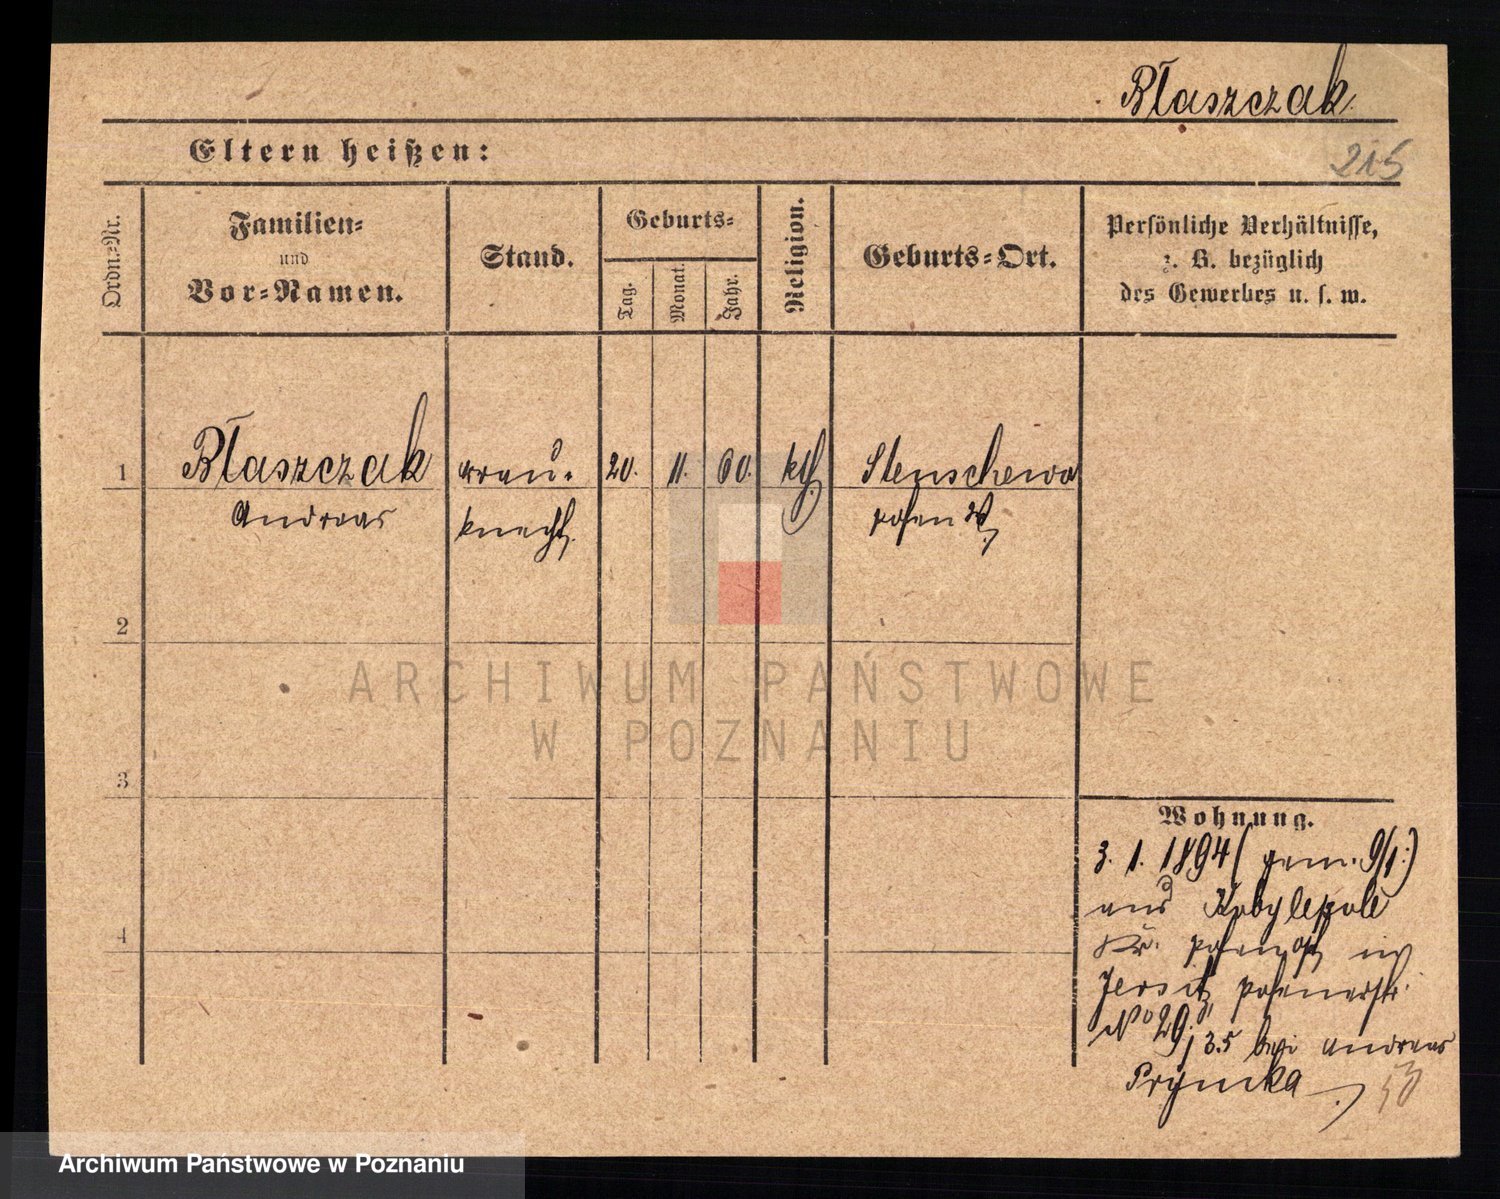 Błaszczak
Eltern heißen:
215
Ordn.-Nr.
Familien-
und
Vor-Namen.
Stand.
Geburts-
Tag.
Monat.
Jahr.
Religion.
Geburts-Ort.
Persönliche Verhältnisse,
z. B. bezüglich
des Gewerbes u. s. w.
1
Błaszczak
Andreas
knecht
20.
11.
60.
kth
Stenschewo
Posen W.
2
3
4
Wohnung.
3. 1. 1894 (gem. 9/1.)
aus Kobylepole
Kr. Posen Ost in
Jersitz, Posenerstr.
No 29, 3.5 bei Andreas
Prymka
53
ARCHIWUM PAŃSTWOWE
W POZNANIU
Archiwum Państwowe w Poznaniu